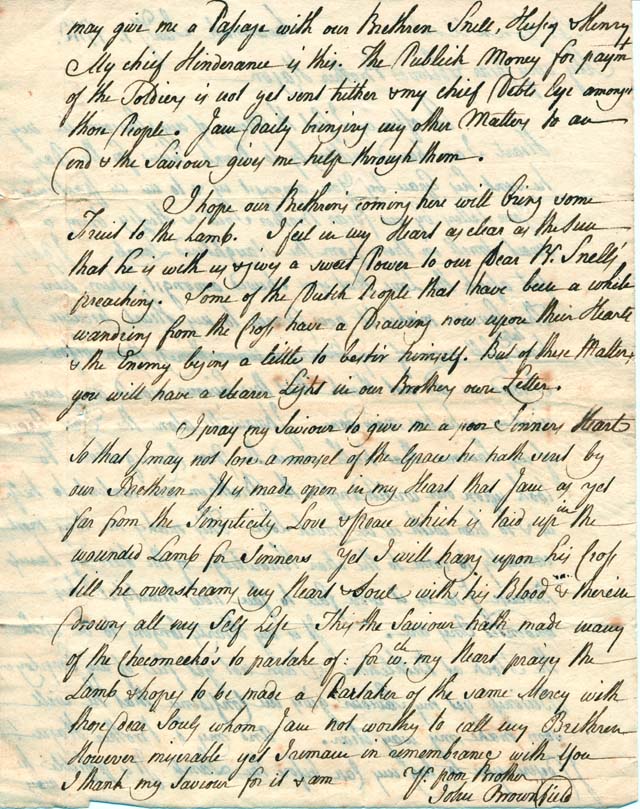 may give me a Passage with our Brethren Snell, Hussey & Henry
My chief Hinderance is this. The Publick Money for paymt
of the Soldiers is not yet sent hither & my chief Debts lye amongst
those People. I am Daily bringing my other Matters to an
End & the Saviour gives me help through them.
I hope our Brethrens coming here will bring some
Fruit to the Lamb. I feel in my Heart as clear as the Sun
that he is with us & gives a sweet Power to our Dear Br. Snells
preaching. Some of the Dutch People that have been a while
wandring from the Cross have a Drawing now upon their Hearts
& the Enemy begins a little to bestir himself. But of these Matters
you will have a clearer Light in our Brothers own Letter.
I pray my Saviour to give me a poor Sinners Heart
so that I may not lose a morsel of the Grace he hath sent by
our Brethren It is made open in my Heart that I am as yet
far from the Simplicity Love & peace which is laid up in the
wounded Lamb for Sinners Yet I will hang upon his Cross
till he overstreams my Heart & Soul with his Blood & therein
drowns all my Self Life This the Saviour hath made many
of the Checomecko's to partake of: for wch. my Heart prays the
Lamb & hopes to be made a Partaker of the same Mercy with
those dear Souls whom I am not worthy to call my Brethren
However miserable yet I remain in remembrance with You
I thank my Saviour for it & am Yr. poor Brother
John Brownfield